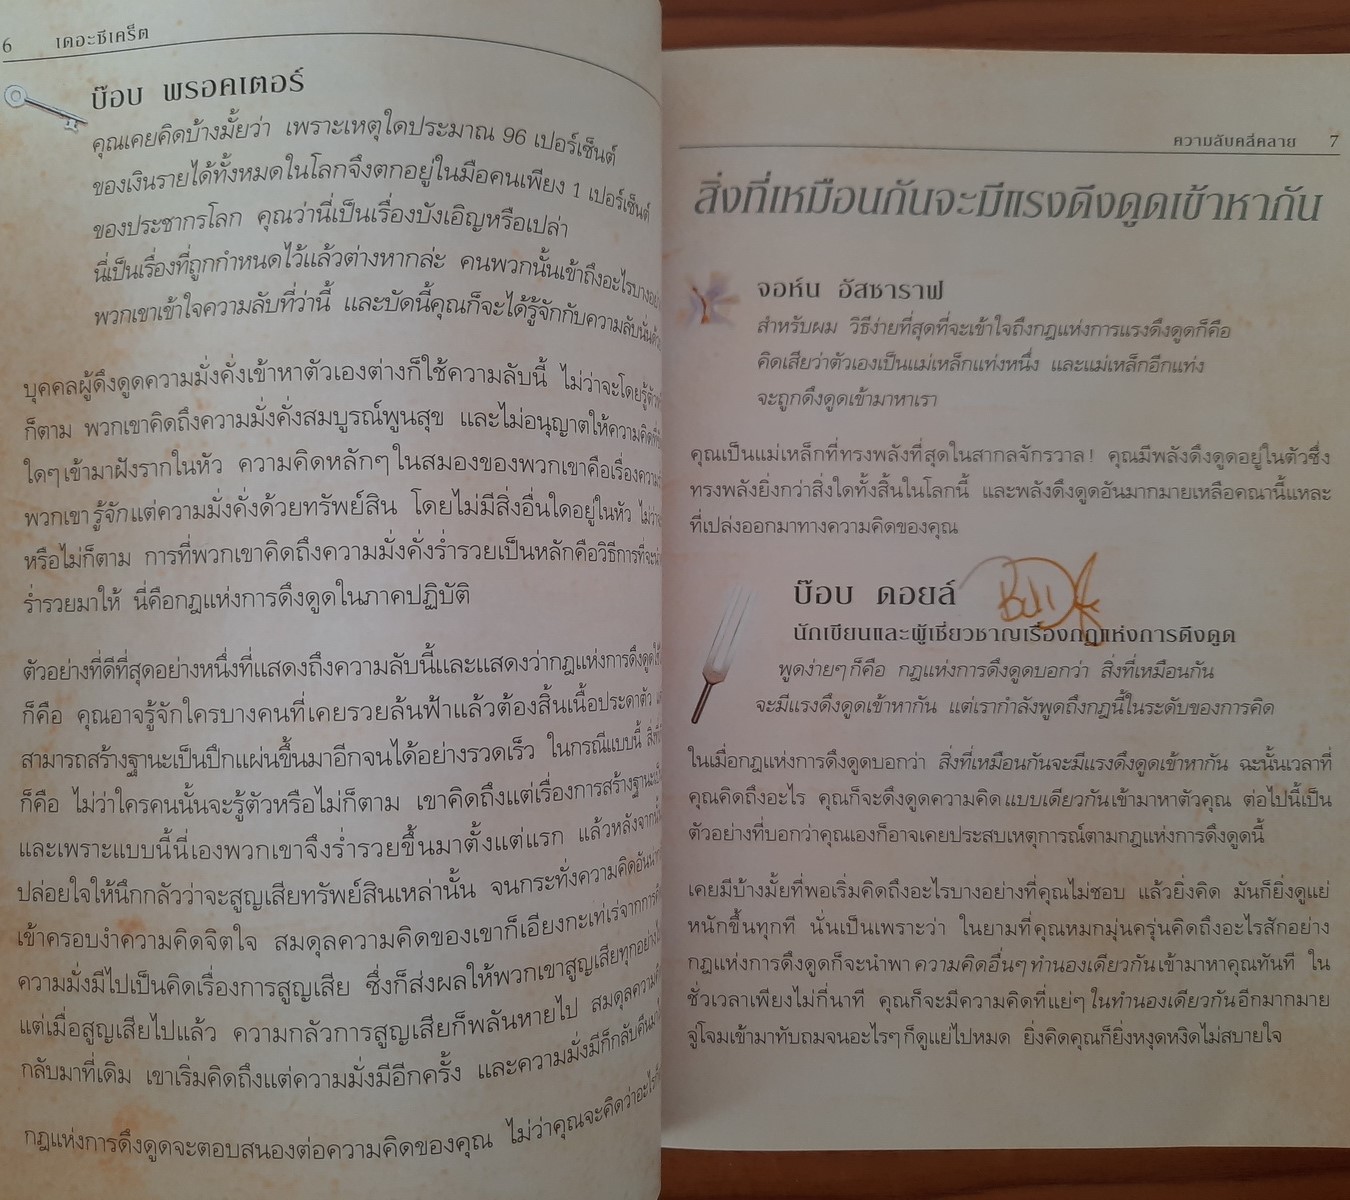 6 เดอะซีเคร็ต
บ๊อบ พรอคเตอร์
คุณเคยคิดบ้างมั้ยว่า เพราะเหตุใดประมาณ 96 เปอร์เซ็นต์
ของเงินรายได้ทั้งหมดในโลกจึงตกอยู่ในมือคนเพียง 1 เปอร์เซ็นต์
ของประชากรโลก คุณว่านี่เป็นเรื่องบังเอิญหรือเปล่า
นี่เป็นเรื่องที่ถูกกำหนดไว้แล้วต่างหากล่ะ คนพวกนั้นเข้าถึงอะไรบาง
พวกเขาเข้าใจความลับที่ว่านี้ และบัดนี้คุณก็จะได้รู้จักกับความลับนั้น
บุคคลผู้ดึงดูดความมั่งคั่งเข้าหาตัวเองต่างก็ใช้ความลับนี้ ไม่ว่าจะโดยรู้
ก็ตาม พวกเขาคิดถึงความมั่งคั่งสมบูรณ์พูนสุข และไม่อนุญาตให้ความคิด
ใดๆ เข้ามาฝังรากในหัว ความคิดหลักๆ ในสมองของพวกเขาคือเรื่อง
พวกเขารู้จักแต่ความมั่งคั่งด้วยทรัพย์สิน โดยไม่มีสิ่งอื่นใดอยู่ในหัว
หรือไม่ก็ตาม การที่พวกเขาคิดถึงความมั่งคั่งร่ำรวยเป็นหลักคือวิธีการที่จะ
ร่ำรวยมาให้ นี่คือกฎแห่งการดึงดูดในภาคปฏิบัติ
ตัวอย่างที่ดีที่สุดอย่างหนึ่งที่แสดงถึงความลับนี้และแสดงว่ากฎแห่งการดึงดูด
ก็คือ คุณอาจรู้จักใครบางคนที่เคยรวยล้นฟ้าแล้วต้องสิ้นเนื้อประดาตัว
สามารถสร้างฐานะเป็นปึกแผ่นขึ้นมาอีกจนได้อย่างรวดเร็ว ในกรณีแบบนี้
ก็คือ ไม่ว่าใครคนนั้นจะรู้ตัวหรือไม่ก็ตาม เขาคิดถึงแต่เรื่องการสร้างฐานะ
และเพราะแบบนี้นี่เองพวกเขาจึงร่ำรวยขึ้นมาตั้งแต่แรก แล้วหลังจาก
ปล่อยใจให้นึกกลัวว่าจะสูญเสียทรัพย์สินเหล่านั้น จนกระทั่งความคิดอัน
เข้าครอบงำความคิดจิตใจ สมดุลความคิดของเขาก็เอียงกะเท่เร่จากการ
ความมั่งมีไปเป็นคิดเรื่องการสูญเสีย ซึ่งก็ส่งผลให้พวกเขาสูญเสียทุกอย่าง
แต่เมื่อสูญเสียไปแล้ว ความกลัวการสูญเสียก็พลันหายไป สมดุลความ
กลับมาที่เดิม เขาเริ่มคิดถึงแต่ความมั่งมีอีกครั้ง และความมั่งมีก็กลับคืน
กฎแห่งการดึงดูดจะตอบสนองต่อความคิดของคุณ ไม่ว่าคุณจะคิดว่าอะไร
ความลับคลี่คลาย 7
สิ่งที่เหมือนกันจะมีแรงดึงดูดเข้าหากัน
จอห์น อัสซาราฟ
สำหรับผม วิธีง่ายที่สุดที่จะเข้าใจถึงกฎแห่งการแรงดึงดูดก็คือ
คิดเสียว่าตัวเองเป็นแม่เหล็กแท่งหนึ่ง และแม่เหล็กอีกแท่ง
จะถูกดึงดูดเข้ามาหาเรา
คุณเป็นแม่เหล็กที่ทรงพลังที่สุดในสากลจักรวาล! คุณมีพลังดึงดูดอยู่ในตัวซึ่ง
ทรงพลังยิ่งกว่าสิ่งใดทั้งสิ้นในโลกนี้ และพลังดึงดูดอันมากมายเหลือคณานี้แหละ
ที่เปล่งออกมาทางความคิดของคุณ
บ๊อบ ดอยล์
นักเขียนและผู้เชี่ยวชาญเรื่องกฎแห่งการดึงดูด
พูดง่ายๆ ก็คือ กฎแห่งการดึงดูดบอกว่า สิ่งที่เหมือนกัน
จะมีแรงดึงดูดเข้าหากัน แต่เรากำลังพูดถึงกฎนี้ในระดับของการคิด
ในเมื่อกฎแห่งการดึงดูดบอกว่า สิ่งที่เหมือนกันจะมีแรงดึงดูดเข้าหากัน ฉะนั้นเวลาที่
คุณคิดถึงอะไร คุณก็จะดึงดูดความคิดแบบเดียวกันเข้ามาหาตัวคุณ ต่อไปนี้เป็น
ตัวอย่างที่บอกว่าคุณเองก็อาจเคยประสบเหตุการณ์ตามกฎแห่งการดึงดูดนี้
เคยมีบ้างมั้ยที่พอเริ่มคิดถึงอะไรบางอย่างที่คุณไม่ชอบ แล้วยิ่งคิด มันก็ยิ่งดูแย่
หนักขึ้นทุกที นั่นเป็นเพราะว่า ในยามที่คุณหมกมุ่นครุ่นคิดถึงอะไรสักอย่าง
กฎแห่งการดึงดูดก็จะนำพา ความคิดอื่นๆ ทำนองเดียวกันเข้ามาหาคุณทันที ใน
ชั่วเวลาเพียงไม่กี่นาที คุณก็จะมีความคิดที่แย่ๆ ในทำนองเดียวกันอีกมากมาย
จู่โจมเข้ามาทับถมจนอะไรๆ ก็ดูแย่ไปหมด ยิ่งคิดคุณก็ยิ่งหงุดหงิดไม่สบายใจ